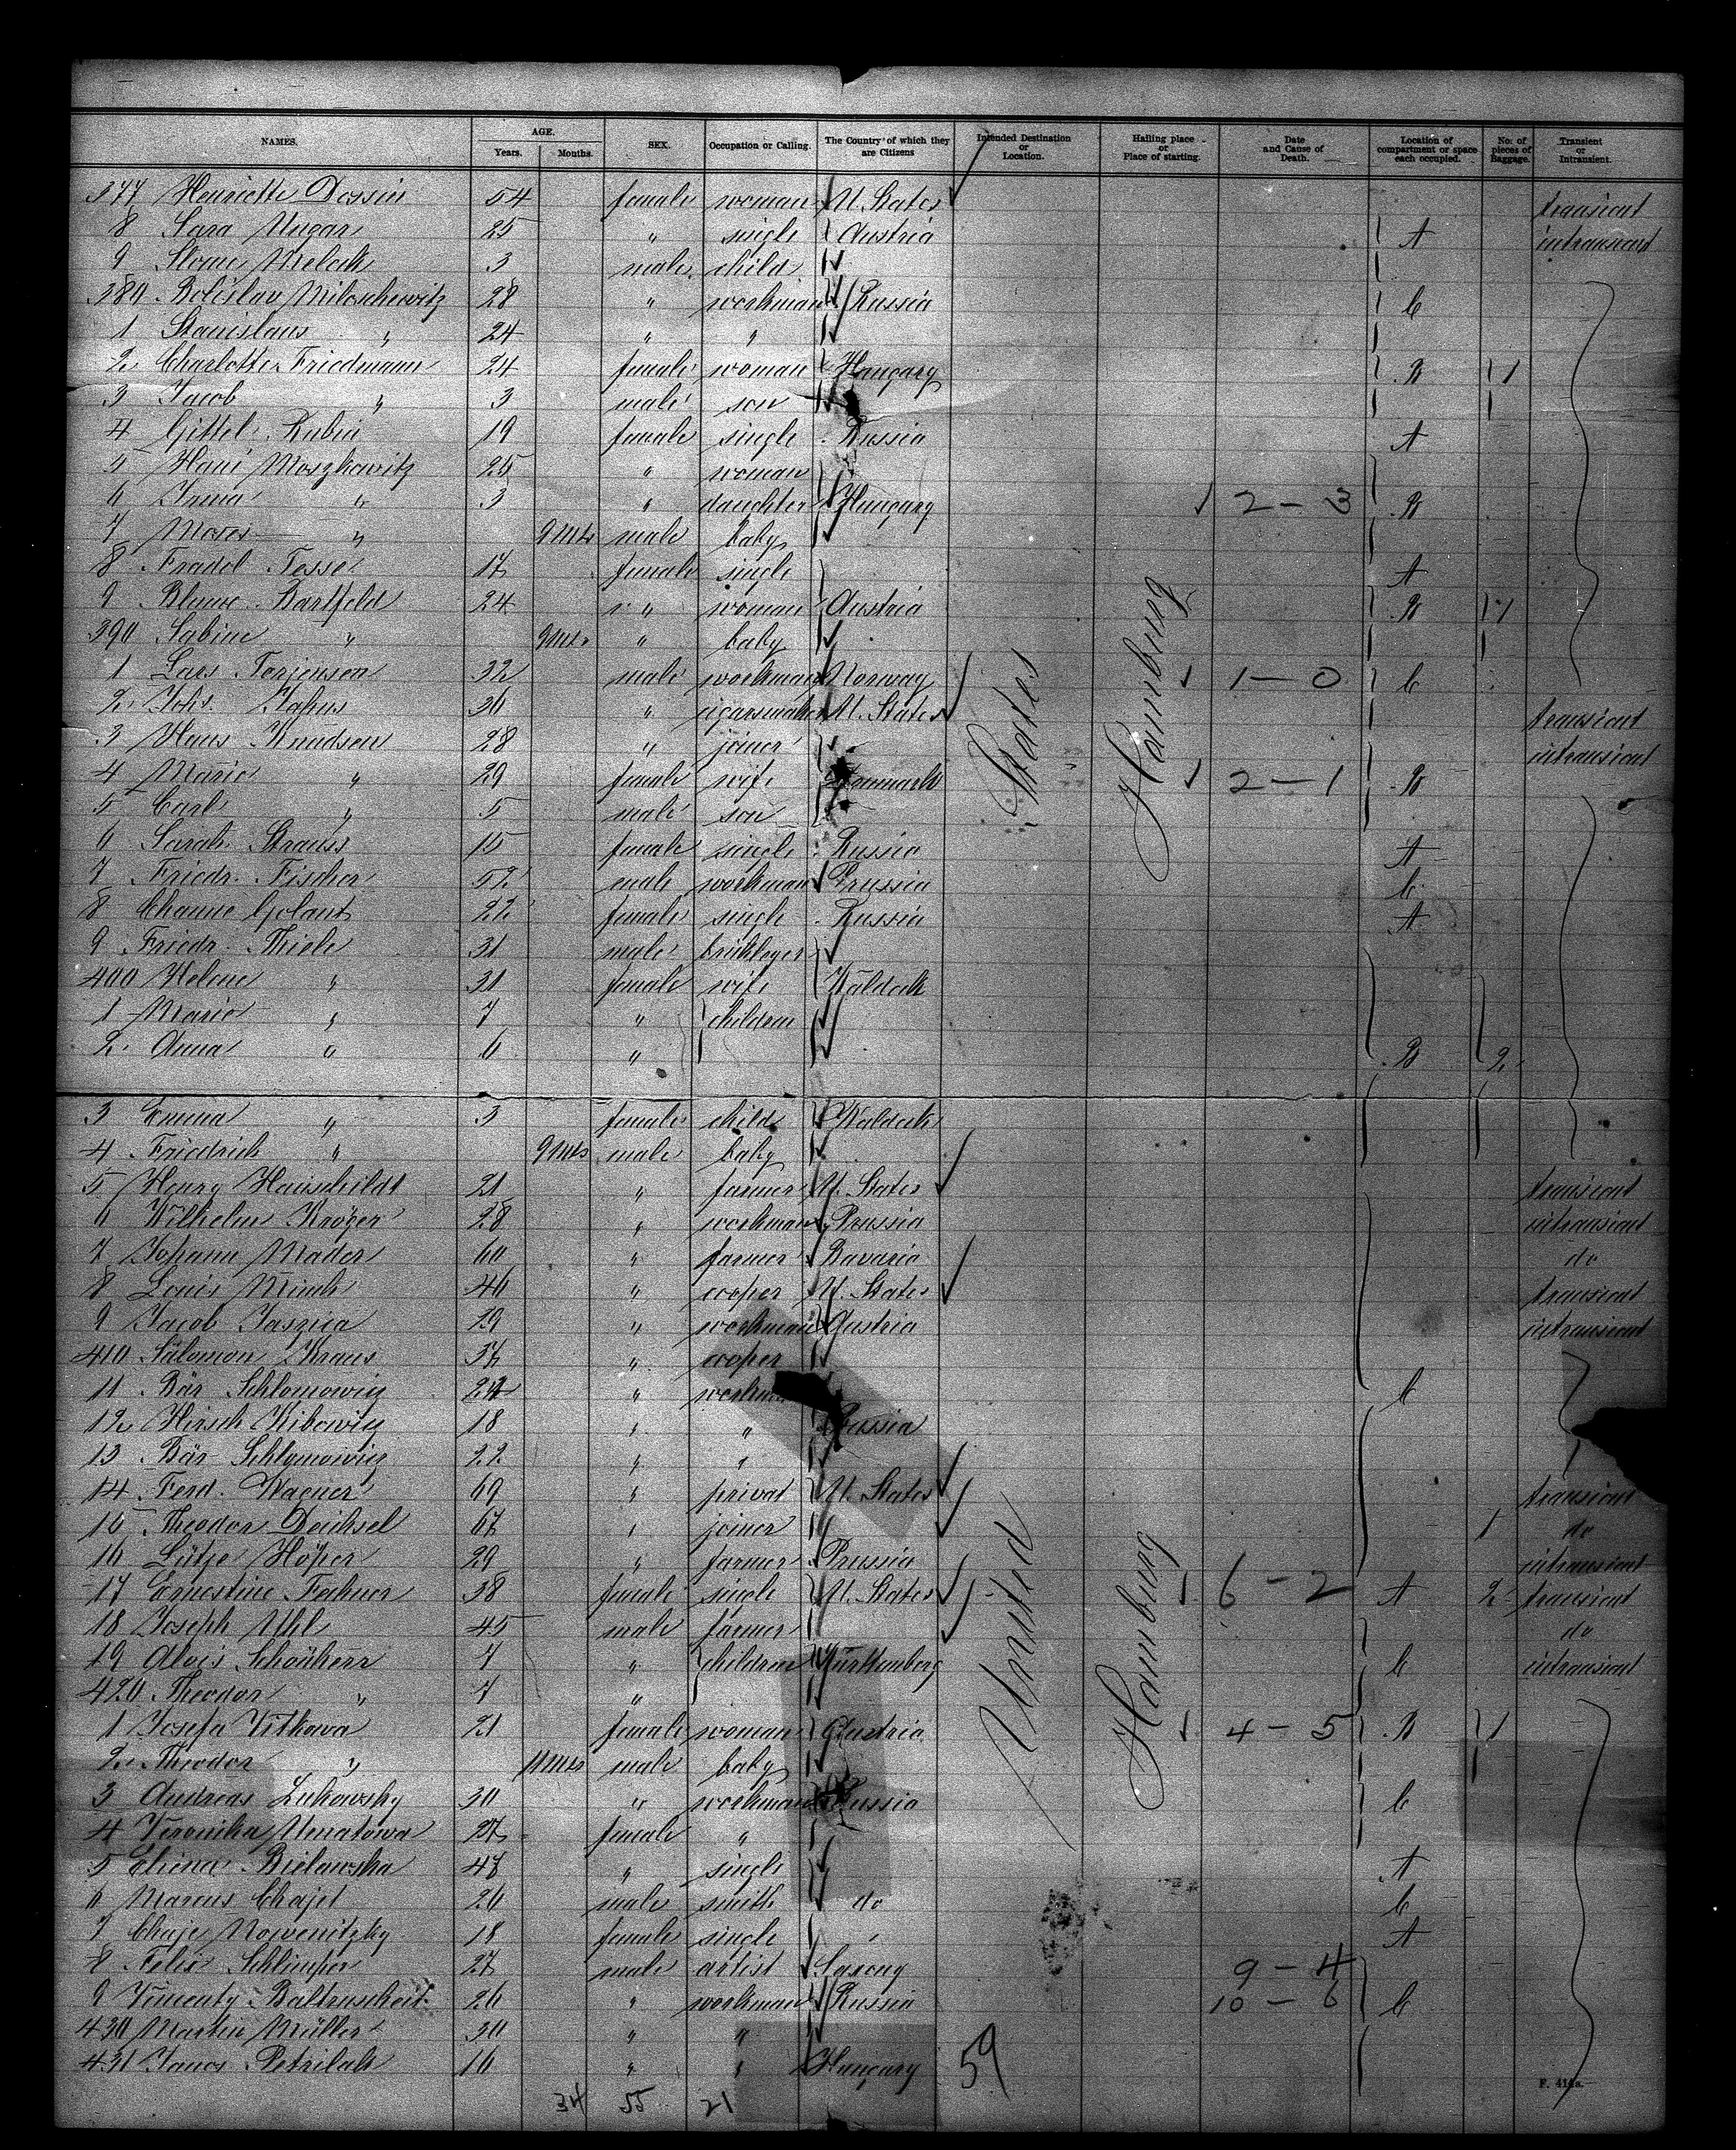 NAMES. AGE. Years. Months. SEX. Occupation or Calling. The Country of which they are Citizens Intended Destination or Location. Hailing place or Place of starting. Date and Cause of Death. Location of compartment or space each occupied. No. of pieces of Baggage. Transient or Intransient.
377 Henriette Dossin 54 female woman U. States transient
8 Sara Ungar 25 " single Austria A intransient
9 3 male child
380 Miloschewitz 28 " workman Russia C
1 Stanislaus " 24 " "
2 Charlotte Friedmann 24 female woman Hungary B 1
3 Jacob " 3 male son
4 Gittel Rubin 19 female single Russia A
5 Hani Moszkowitz 25 " woman
6 Irma " 3 " daughter Hungary 2 - 3 B
7 Moses " 9 mts male baby
8 Fradel Tesse 17 female single A
9 Blume Bartfeld 24 " woman Austria B 1
390 Sabine " 9 mts " baby
1 Lars Torjensen 32 male workman Norway 1 - 0 C
2 Johs. 30 " cigarsmaker U. States transient
3 Hans Knudsen 28 " joiner intransient
4 Marie " 29 female wife Danmark 2 - 1 B
5 Carl " 5 male son
6 Sarah Strauss 15 female single Russia A
7 Friedr. Fischer 52 male workman Prussia C
8 Channe Golant 22 female single Russia A
9 Friedr. Thiele 31 male
400 Helene " 31 female wife Waldeck
1 Marie " 7 " children
2 Anna " 6 " B 2
3 Emma " 3 female child Waldeck
4 Friedrich " 9 mts male baby
5 Henry Hauschildt 21 " farmer U. States transient
6 Wilhelm Kröger 28 " workman Prussia intransient
7 Johann Mader 60 " farmer Bavaria do
8 Louis 40 " cooper U. States transient
9 Jacob 29 " workman Austria intransient
410 Salomon Kraus 37 " cooper
11 Bär Schlomowiz 24 " C
12 Hirsch 18 " " Russia
13 Bär Schlomowiz 22 " "
14 Ferd. Wagner 69 " privat U. States transient
15 Theodor Deichsel 67 " joiner 1 do
16 Lütje Höper 29 " farmer Prussia intransient
17 Ernestine Fechner 38 female single U. States 6 - 2 A 2 transient
18 Joseph Uhl 45 male farmer do
19 Alois Schönherr 7 " children Württemberg C intransient
420 Theodor " 7 "
1 Josefa Vitkowa 21 female woman Austria 4 - 5 B 1
2 Theodor " 11 mts male baby
3 Andreas Lukowsky 30 " workman Russia C
4 Veronika 27 female "
5 Bielawska 47 " single A
6 Marcus Chajet 20 male smith do C
7 Chaje Nowenitzky 18 female single " A
8 Felix Schlimper 27 male artist Saxony 9 - 4
9 Baltruscheit 26 " workman Russia 10 - 6 C
430 Martin Müller 30 " "
431 Janos Petrilak 16 " " Hungary 59
34 55 21
United States
Hamburg
Hamburg